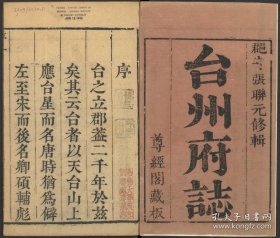 郡守張聯元修輯
台州府誌
尊經閣藏板
序
台之立郡蓋二千年於茲
矣其云台者以天台山上
應台星而名唐時猶為僻
左至宋而後名卿碩輔彪